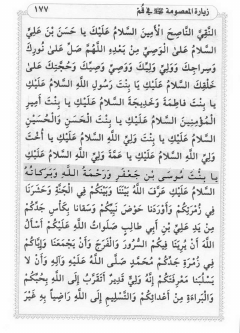 زيارة المعصومة ﷺ في قم ١٧٧
النَّقِيِّ النَّاصِحِ الْأَمِينَ السَّلَامُ عَلَيْكَ يَا حَسَنَ بْنَ عَلِيٍّ
السَّلَامُ عَلَىٰ الْوَصِيِّ مِنْ بَعْدِهِ اللَّهُمَّ صَلِّ عَلَىٰ نُورِكَ
وَسِرَاجِكَ وَوَلِيِّ وَلِيِّكَ وَوَصِيِّ وَصِيِّكَ وَحُجَّتِكَ عَلَىٰ
خَلْقِكَ السَّلَامُ عَلَيْكِ يَا بِنْتَ رَسُولِ اللَّهِ السَّلَامُ عَلَيْكِ
يَا بِنْتَ فَاطِمَةَ وَخَدِيجَةَ السَّلَامُ عَلَيْكِ يَا بِنْتَ أَمِيرِ
الْمُؤْمِنِينَ السَّلَامُ عَلَيْكِ يَا بِنْتَ الْحَسَنِ وَالْحُسَيْنِ
السَّلَامُ عَلَيْكِ يَا بِنْتَ وَلِيِّ اللَّهِ السَّلَامُ عَلَيْكِ يَا أُخْتَ
وَلِيِّ اللَّهِ السَّلَامُ عَلَيْكِ يَا عَمَّةَ وَلِيِّ اللَّهِ السَّلَامُ عَلَيْكِ
يَا بِنْتَ مُوسَىٰ بْنِ جَعْفَرٍ وَرَحْمَةُ اللَّهِ وَبَرَكَاتُهُ
السَّلَامُ عَلَيْكِ عَرَّفَ اللَّهُ بَيْنَنَا وَبَيْنَكُمْ فِي الْجَنَّةِ وَحَشَرَنَا
فِي زُمْرَتِكُمْ وَأَوْرَدَنَا حَوْضَ نَبِيِّكُمْ وَسَقَانَا بِكَأْسِ جَدِّكُمْ
مِنْ يَدِ عَلِيِّ بْنِ أَبِي طَالِبٍ صَلَوَاتُ اللَّهِ عَلَيْكُمْ أَسْأَلُ
اللَّهَ أَنْ يُرِيَنَا فِيكُمُ السُّرُورَ وَالْفَرَجَ وَأَنْ يَجْمَعَنَا وَإِيَّاكُمْ
فِي زُمْرَةِ جَدِّكُمْ مُحَمَّدٍ صَلَّى اللَّهُ عَلَيْهِ وَآلِهِ وَأَنْ لَا
يَسْلُبَنَا مَعْرِفَتَكُمْ إِنَّهُ وَلِيٌّ قَدِيرٌ أَتَقَرَّبُ إِلَى اللَّهِ بِحُبِّكُمْ
وَالْبَرَاءَةِ مِنْ أَعْدَائِكُمْ وَالتَّسْلِيمِ إِلَى اللَّهِ رَاضِيًا بِهِ غَيْرَ